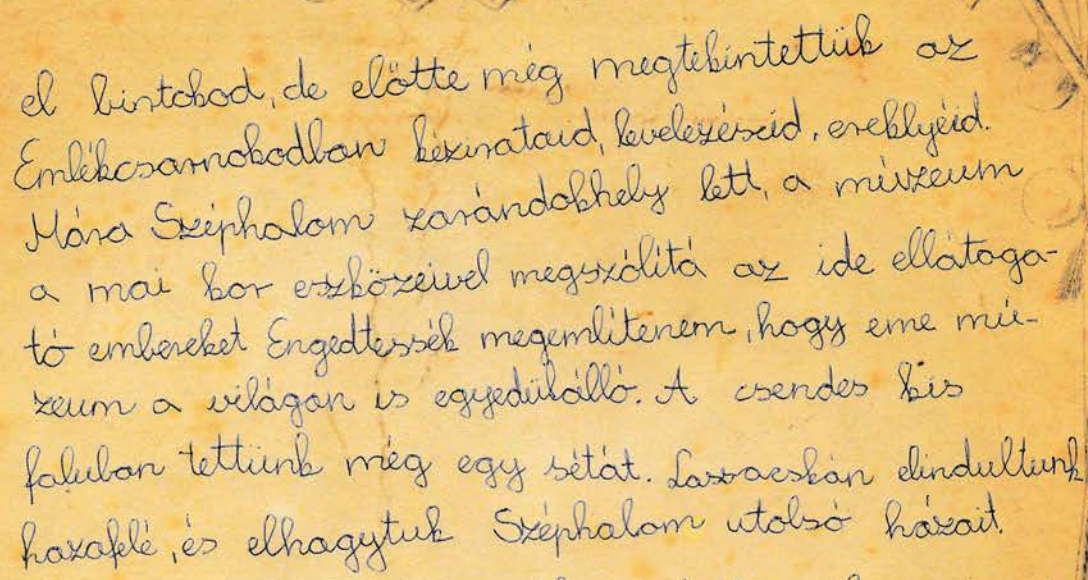 el birtokod, de előtte még megtekintettük az
Emlékcsarnokodban kézirataid, levelezéseid, ereklyéid.
Mára Széphalom zarándokhely lett, a múzeum
a mai kor eszközeivel megszólítá az ide ellátoga-
tó embereket Engedtessék megemlítenem, hogy eme mú-
zeum a világon is egyedülálló. A csendes kis
faluban tettünk még egy sétát. Lassacskán elindultunk
hazafelé, és elhagytuk Széphalom utolsó házait.